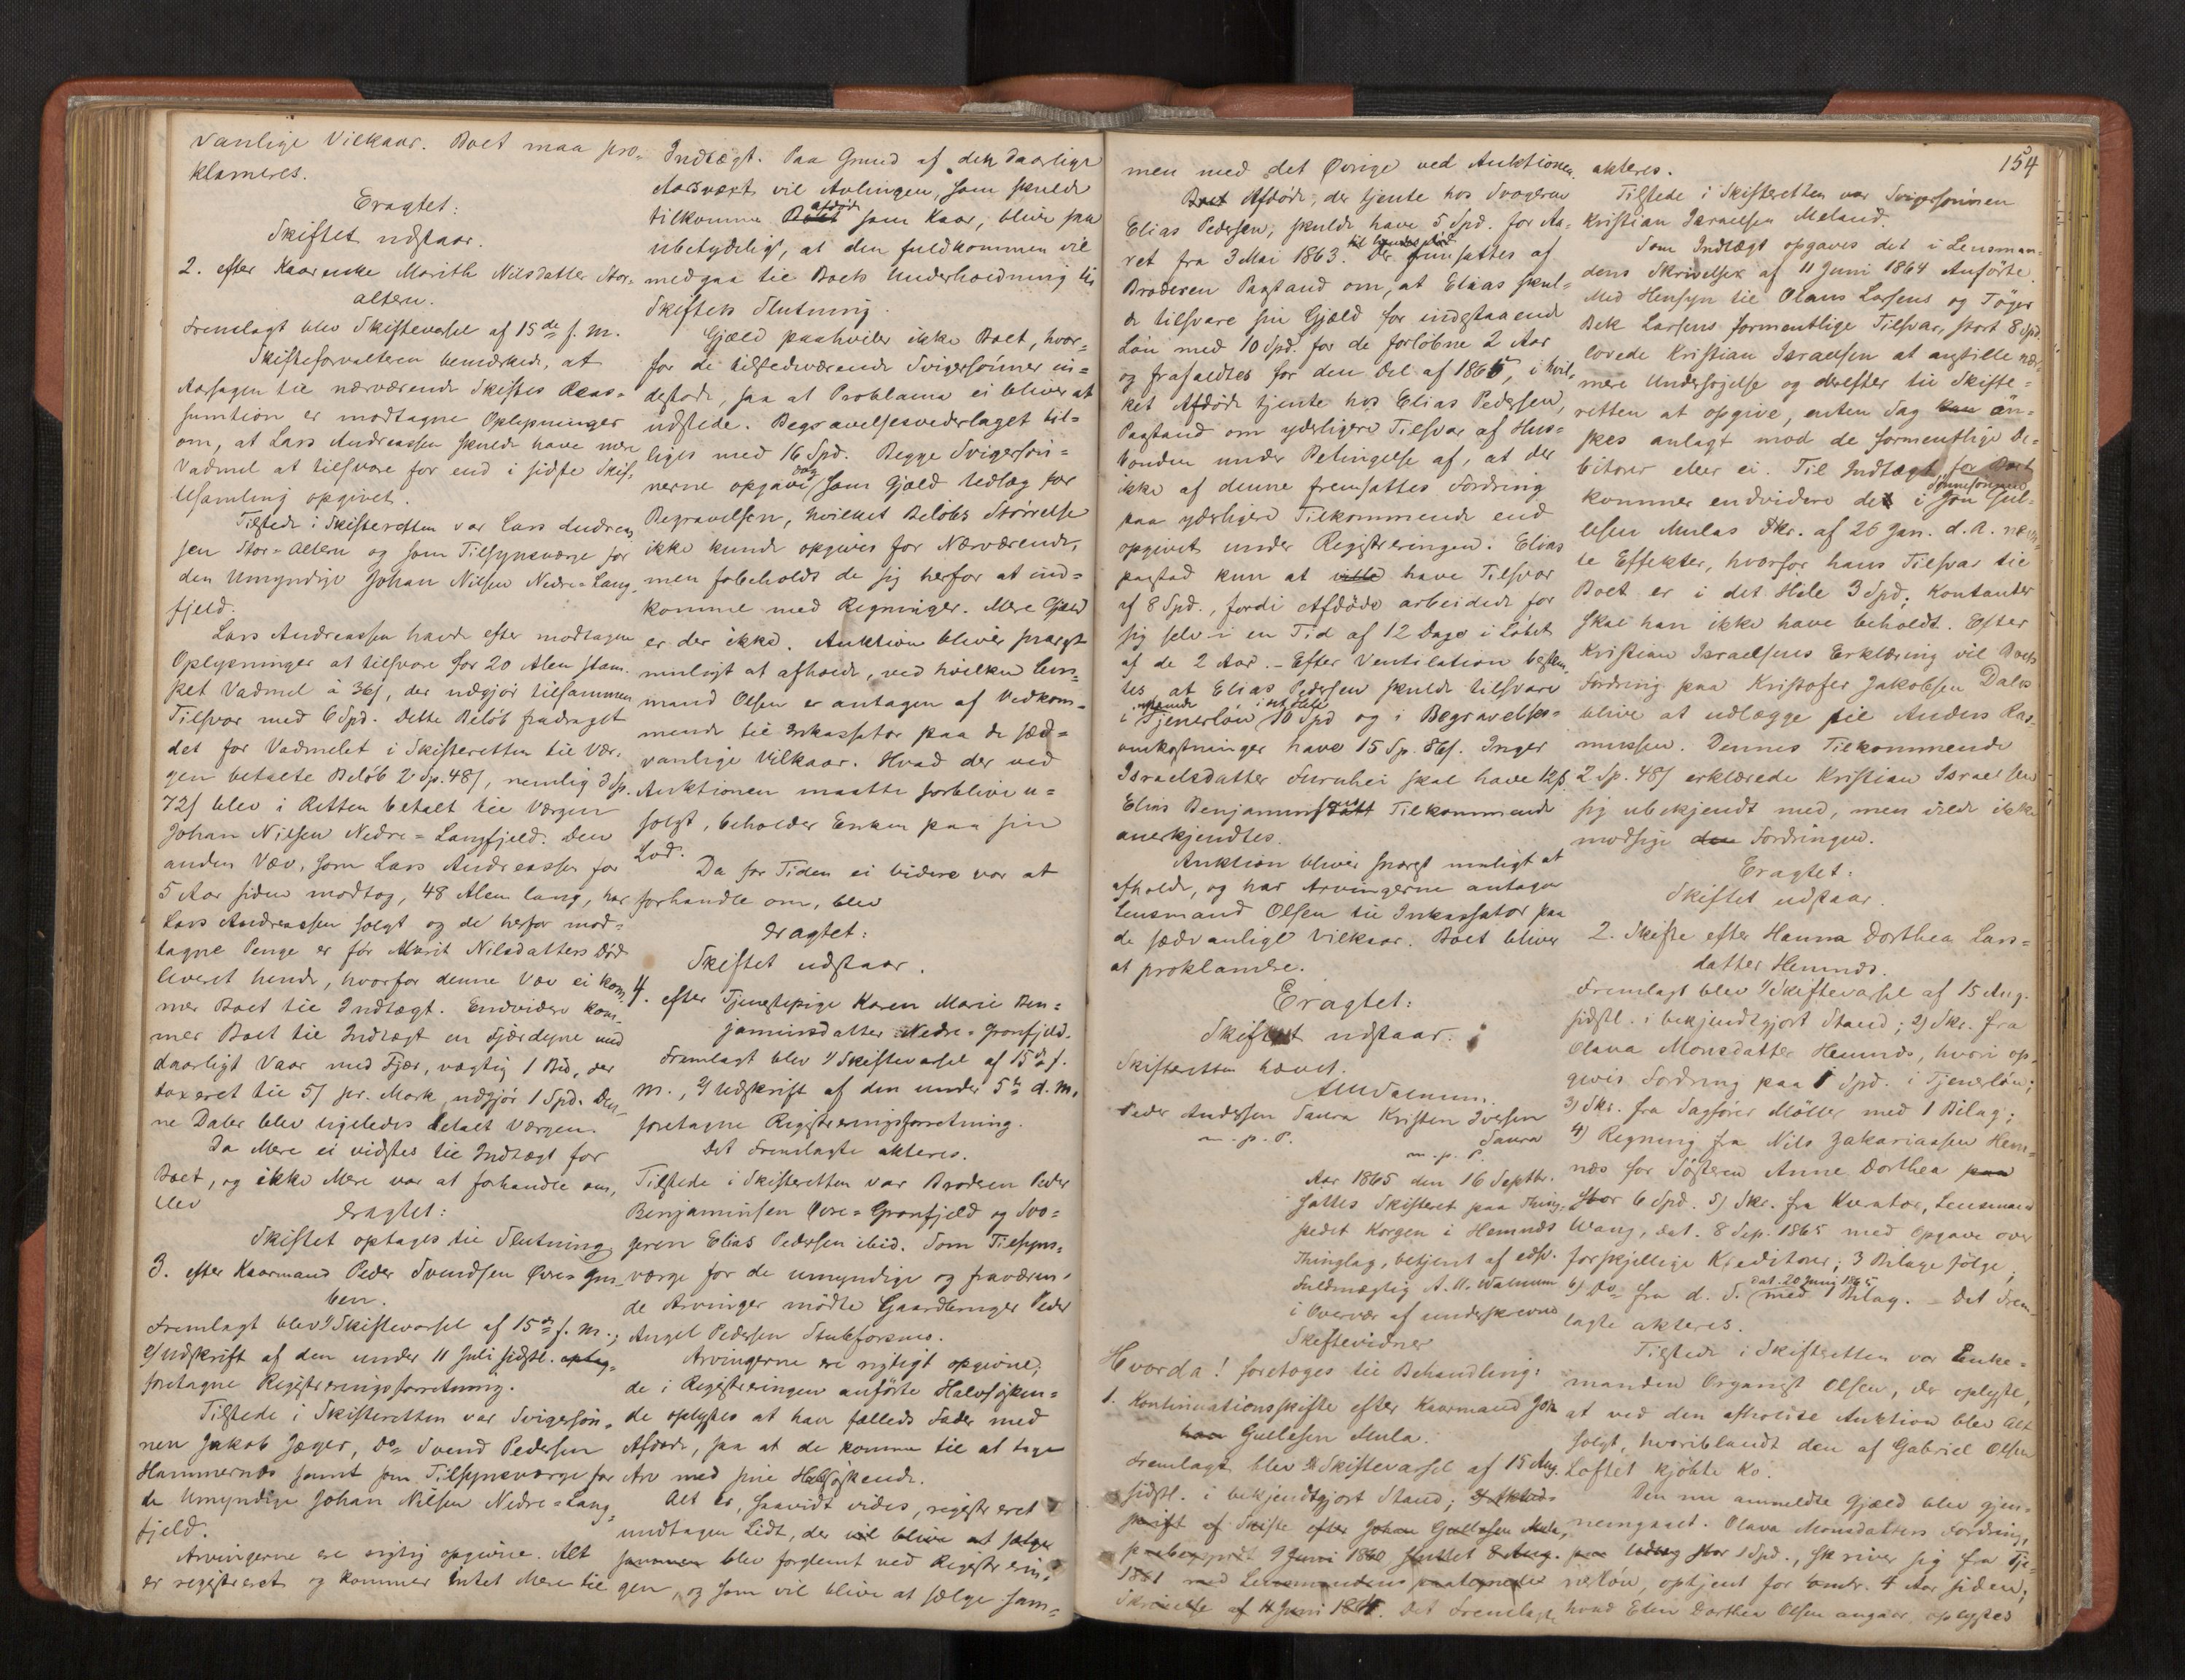 vanlige Vilkaar. Boet maa pro-
klameres.
Eragtet:
Skiftet udstaar.
2. efter Kaarenke Marith Nilsdatter Stor-
altern.
Fremlagt blev Skiftevarsel af 15de f. M.
Skifteforvalteren bemærkede, at
Aarsagen til nærværende Skiftes Reas-
sumtion er modtagne Oplysninger
om, at Lars Andreassen skulde have mere
Vadmel at tilsvare for end i sidste Skif-
tesamling opgivet.
Tilstede i Skifteretten var Lars Andreas
sen Stor-Altern og som Tilsynsværge for
den Umyndige Johan Nilsen Nedre-Lang-
fjeld.
Lars Andreassen havde efter modtagen
Oplysninger at tilsvare for 20 Alen stam-
pet Vadmel à 36 s, der udgjør tilsammen
Tilsvar med 6 Spd. Dette Beløb fradraget
det for Vadmelet i Skifteretten til Vær-
gen betalte Beløb 2 Sp. 48 s, nemlig 3 Sp.
72 s blev i Retten betalt til Værgen
Johan Nilsen Nedre-Langfjeld. Den
anden Væv, som Lars Andreassen for
5 Aar siden modtog, 48 Alen lang, har
Lars Andreassen solgt og de herfor mod-
tagne Penge er før Marit Nilsdatters Død
leveret hende, hvorfor denne Væv ei kom-
mer Boet til Indtægt. Endvidere kom-
mer Boet til Indtægt en Fjærdyne med
daarligt Vaar med Fjær, vægtig 1 , der
taxeret til 5 s pr. Mark, udgjør 1 Spd. Den-
ne Daler blev ligeledes betalt Værgen.
Da Mere ei vidstes til Indtægt for
Boet, og ikke Mere var at forhandle om,
blev
eragtet:
Skiftet optages til Slutning
3. efter Kaarmand Peder Svendsen Øvre-
ben.
Fremlagt blev 1/ Skiftevarsel af 15de f. M.;
2/ Udskrift af den under 11 Juli sidstl.
foretagne Registreringsforretning.
Tilstede i Skifteretten var Svigersøn-
nen Jakob Jæger, Do Svend Pedersen
Hammernæs samt som Tilsynsværge for
de Umyndige Johan Nilsen Nedre-Lang-
fjeld.
Arvingerne ere rigtig opgivne. Alt
er registreret og kommer intet Mere til
Indtægt. Paa Grund af den daarlige
Aarsvæxt vil Avlingen, som skulde
tilkomme Boet afdøde som Kaar, blive saa
ubetydeligt, at den fuldkommen vil
medgaa til Boets Underholdning til
Skiftets Slutning.
Gjæld paahviler ikke Boet, hvor-
for de tilstedværende Svigersønner in-
destode, saa at Proklama ei bliver at
udstede. Begravelsesvederlaget bil-
liges med 16 Spd. Begge Svigersøn-
nerne opgave og som Gjæld Udlæg for
Begravelsen, hvilket Beløbs Størrelse
ikke kunde opgives for Nærværende,
men forbeholdt de sig herfor at ind-
komme med Regninger. Mere Gjæld
er der ikke. Auktion bliver snarest
muligt at afholde, ved hvilken Lens-
mand Olsen er antagen af Vedkom-
mende til Inkassator paa de sæd-
vanlige Vilkaar. Hvad der ved
Auktionen maatte forblive u-
solgt, beholder Enken paa sin
Lod.
Da for Tiden ei videre var at
forhandle om, blev
eragtet:
Skiftet udstaar.
4. efter Tjenestepige Karen Marie Ben-
jaminsdatter Nedre-Grønfjeld.
Fremlagt blev 1/ Skiftevarsel af 15de f.
M., 2/ Udskrift af den under 5te d. M.
foretagne Registreringsforretning.
Det Fremlagte akteres.
Tilstede i Skifteretten var Broderen Peder
Benjaminsen Øvre-Grønfjeld og Svo-
geren Elias Pedersen ibid. Som Tilsyns-
værge for de umyndige og fraværen-
de Arvinger mødte Gaardbruger Peder
Angel Pedersen Stubforsmo.
Arvingerne ere rigtigt opgivne;
de i Registreringen anførte Halvsøsken-
de oplystes at have fælleds Fader med
Afdøde, saa at de komme til at tage
Arv med sine Halvsøskende.
Alt er, saavidt vides, registreret
undtagen Lidt, der vil blive at sælge
sammen blev forglemt ved Registrerin-
gen, og som vil blive at sælge sam-
men med det Øvrige ved Auktionen.
Boet Afdøde, der tjente hos Svogeren
Elias Pedersen, skulde have 5 Spd. for Aa-
ret fra 3 Mai 1863 til hendes Død. Der fremsattes af
Broderen Paastand om, at Elias skul-
de tilsvare sin Gjæld for indestaaende
Løn med 10 Spd. for de forløbne 2 Aar
og frafaldtes for den Del af 1865, i hvil-
ket Afdøde tjente hos Elias Pedersen,
Paastand om yderligere Tilsvar af Hus-
bonden under Betingelse af, at der
ikke af denne fremsattes Fordring
paa yderligere Tilkommende end
opgivet under Registreringen. Elias
paastod kun at ville have Tilsvar
af 8 Spd., fordi Afdøde arbeidede for
sig selv i en Tid af 12 Dage i Løbet
af de 2 Aar. - Efter Ventilation bestem-
tes, at Elias Pedersen skulde tilsvare
i indestaaende Tjenerløn i det Hele 10 Spd og i Begravelses-
omkostninger have 15 Sp. 86 s. Inger
Israelsdatter Furuhei skal have 12 s.
Elias Benjaminsens Tilkommende
anerkjendtes.
Auktion bliver snarest muligt at
afholde, og har Arvingerne antaget
Lensmand Olsen til Inkassator paa
de sædvanlige Vilkaar. Boet bliver
at proklamere.
Eragtet:
Skiftet udstaar.
Skifteretten hævet.
AUWalnum.
Peder Andersen Saura Kristen Iversen
m. p. P. Saura
m. p. P.
Aar 1865 den 16 Septbr.
sattes Skifteret paa Thing-
stedet Korgen i Hemnæs
Thinglag, betjent af edsv.
Fuldmægtig A. U. Walnum
i Overvær af underskrevne
Skiftevidner
Hvorda! foretoges til Behandling:
1. Kontinuationsskifte efter Kaarmand Jon
Gullesen Mula.
Fremlagt blev Skiftevarsel af 15 Aug.
sidstl. i bekjendtgjort Stand;
skrift af Skifte efter Johan Gullesen Mula,
paabegyndt 9 Juni 1860 sluttet 8 Aug.
1861 med Lensmandens paategnede
Skrivelse af 11 Juni 1864. Det Fremlagte
154
akteres.
Tilstede i Skifteretten var Svigersønnen
Kristian Israelsen Meland.
Som Indtægt opgaves det i Lensman-
dens Skrivelse af 11 Juni 1864 Anførte.
Med Hensyn til Olaus Larsens og Tøger
Bek Larsens formentlige Tilsvar, stort 8 Spd.
lovede Kristian Israelsen at anstille nær-
mere Undersøgelse og derefter til Skifte-
retten at opgive, enten Sag kan øn-
skes anlagt mod de formentlige De-
bitorer eller ei. Til Indtægt for Boet
kommer endvidere det i Sønnesønnen Jon Gul-
lesen Mulas Skr. af 26 Jan. d. A. nævn-
te Effekter, hvorfor hans Tilsvar til
Boet er i det Hele 3 Spd; Kontanter
skal han ikke have beholdt. Efter
Kristian Israelsens Erklæring vil Boets
Fordring paa Kristofer Jakobsen Dalen
blive at udlægge til Anders Ras-
mussen. Dennes Tilkommende
2 Sp. 48 s erklærede Kristian Israelsen
sig ubekjendt med, men vilde ikke
modsige den Fordringen.
Eragtet:
Skiftet udstaar.
2. Skifte efter Hanna Dorthea Lars-
datter Hemnæs.
Fremlagt blev 1/ Skiftevarsel af 15 Aug.
sidstl. i bekjendtgjort Stand; 2) Skr. fra
Olava Monsdatter Hemnæs, hvori op-
gives Fordring paa 1 Spd. i Tjenerløn;
3) Skr. fra Sagfører Møller med 1 Bilag;
4) Regning fra Nils Zakariassen Hem-
næs for Søsteren Anne Dorthea paa
stor 6 Spd. 5) Skr. fra Kurator, Lensmand
Wang, dat. 8 Sep. 1865 med Opgave over
forskjellige Kreditorer; 3 Bilage følge;
6) Do fra d. S. dat. 20 Juni 1865 med 1 Bilag. - Det Frem-
lagte akteres.
Tilstede i Skifteretten var Enke-
manden Organist Olsen, der oplyste,
at ved den afholdte Auktion blev Alt
solgt, hvoriblandt den af Gabriel Olsen
Loftet kjøbte Ko.
Den nu anmeldte Gjæld blev gjen-
nemgaaet. Olava Monsdatters Fordring,
stor 1 Spd., skriver sig fra Tje-
nerløn, optjent for omtr. 4 Aar siden;
hvad Elen Dorthea Olsen angaar, oplystes